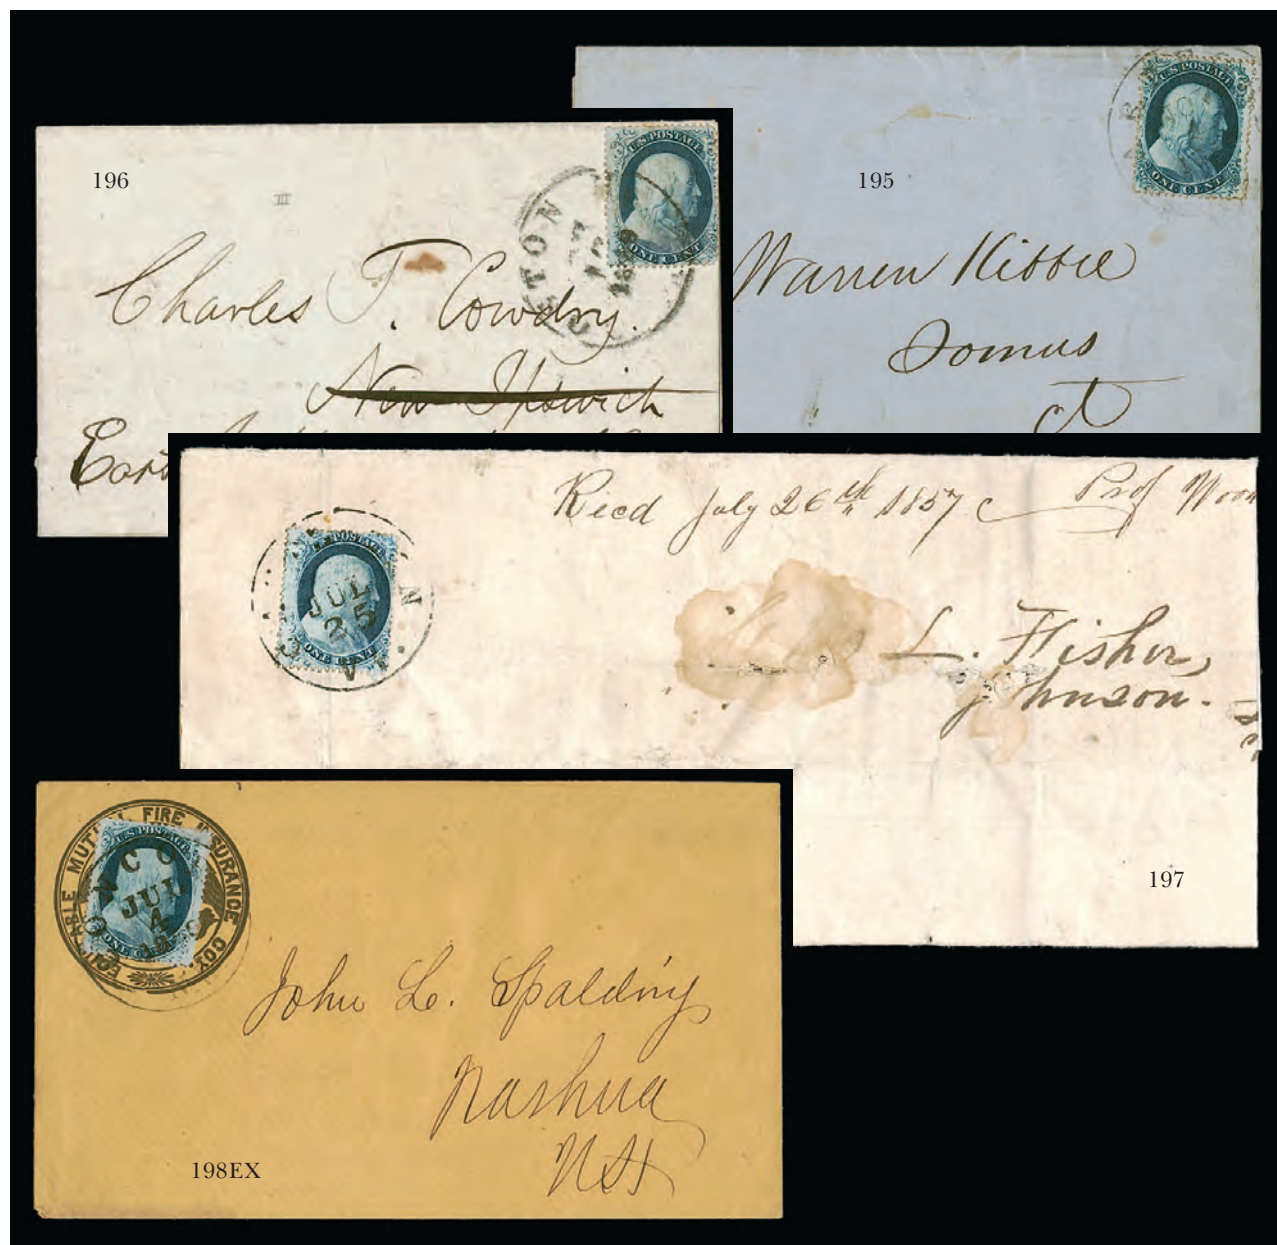 196
III
U.S. POSTAGE
ONE CENT
TON
Charles T. Cowdry.
New Ipswich
195
U.S. POSTAGE
ONE CENT
Warren Kibbie
Somus
ct
Recd July 26th 1857
Prof
U.S. POSTAGE
JUL
25
ONE CENT
N
VT.
L. Fisher,
Johnson.
197
MUTUAL FIRE INSURANCE COY
U.S. POSTAGE
CONCO
JUL
4
ONE CENT
John L. Spalding
Nashua
NH
198EX